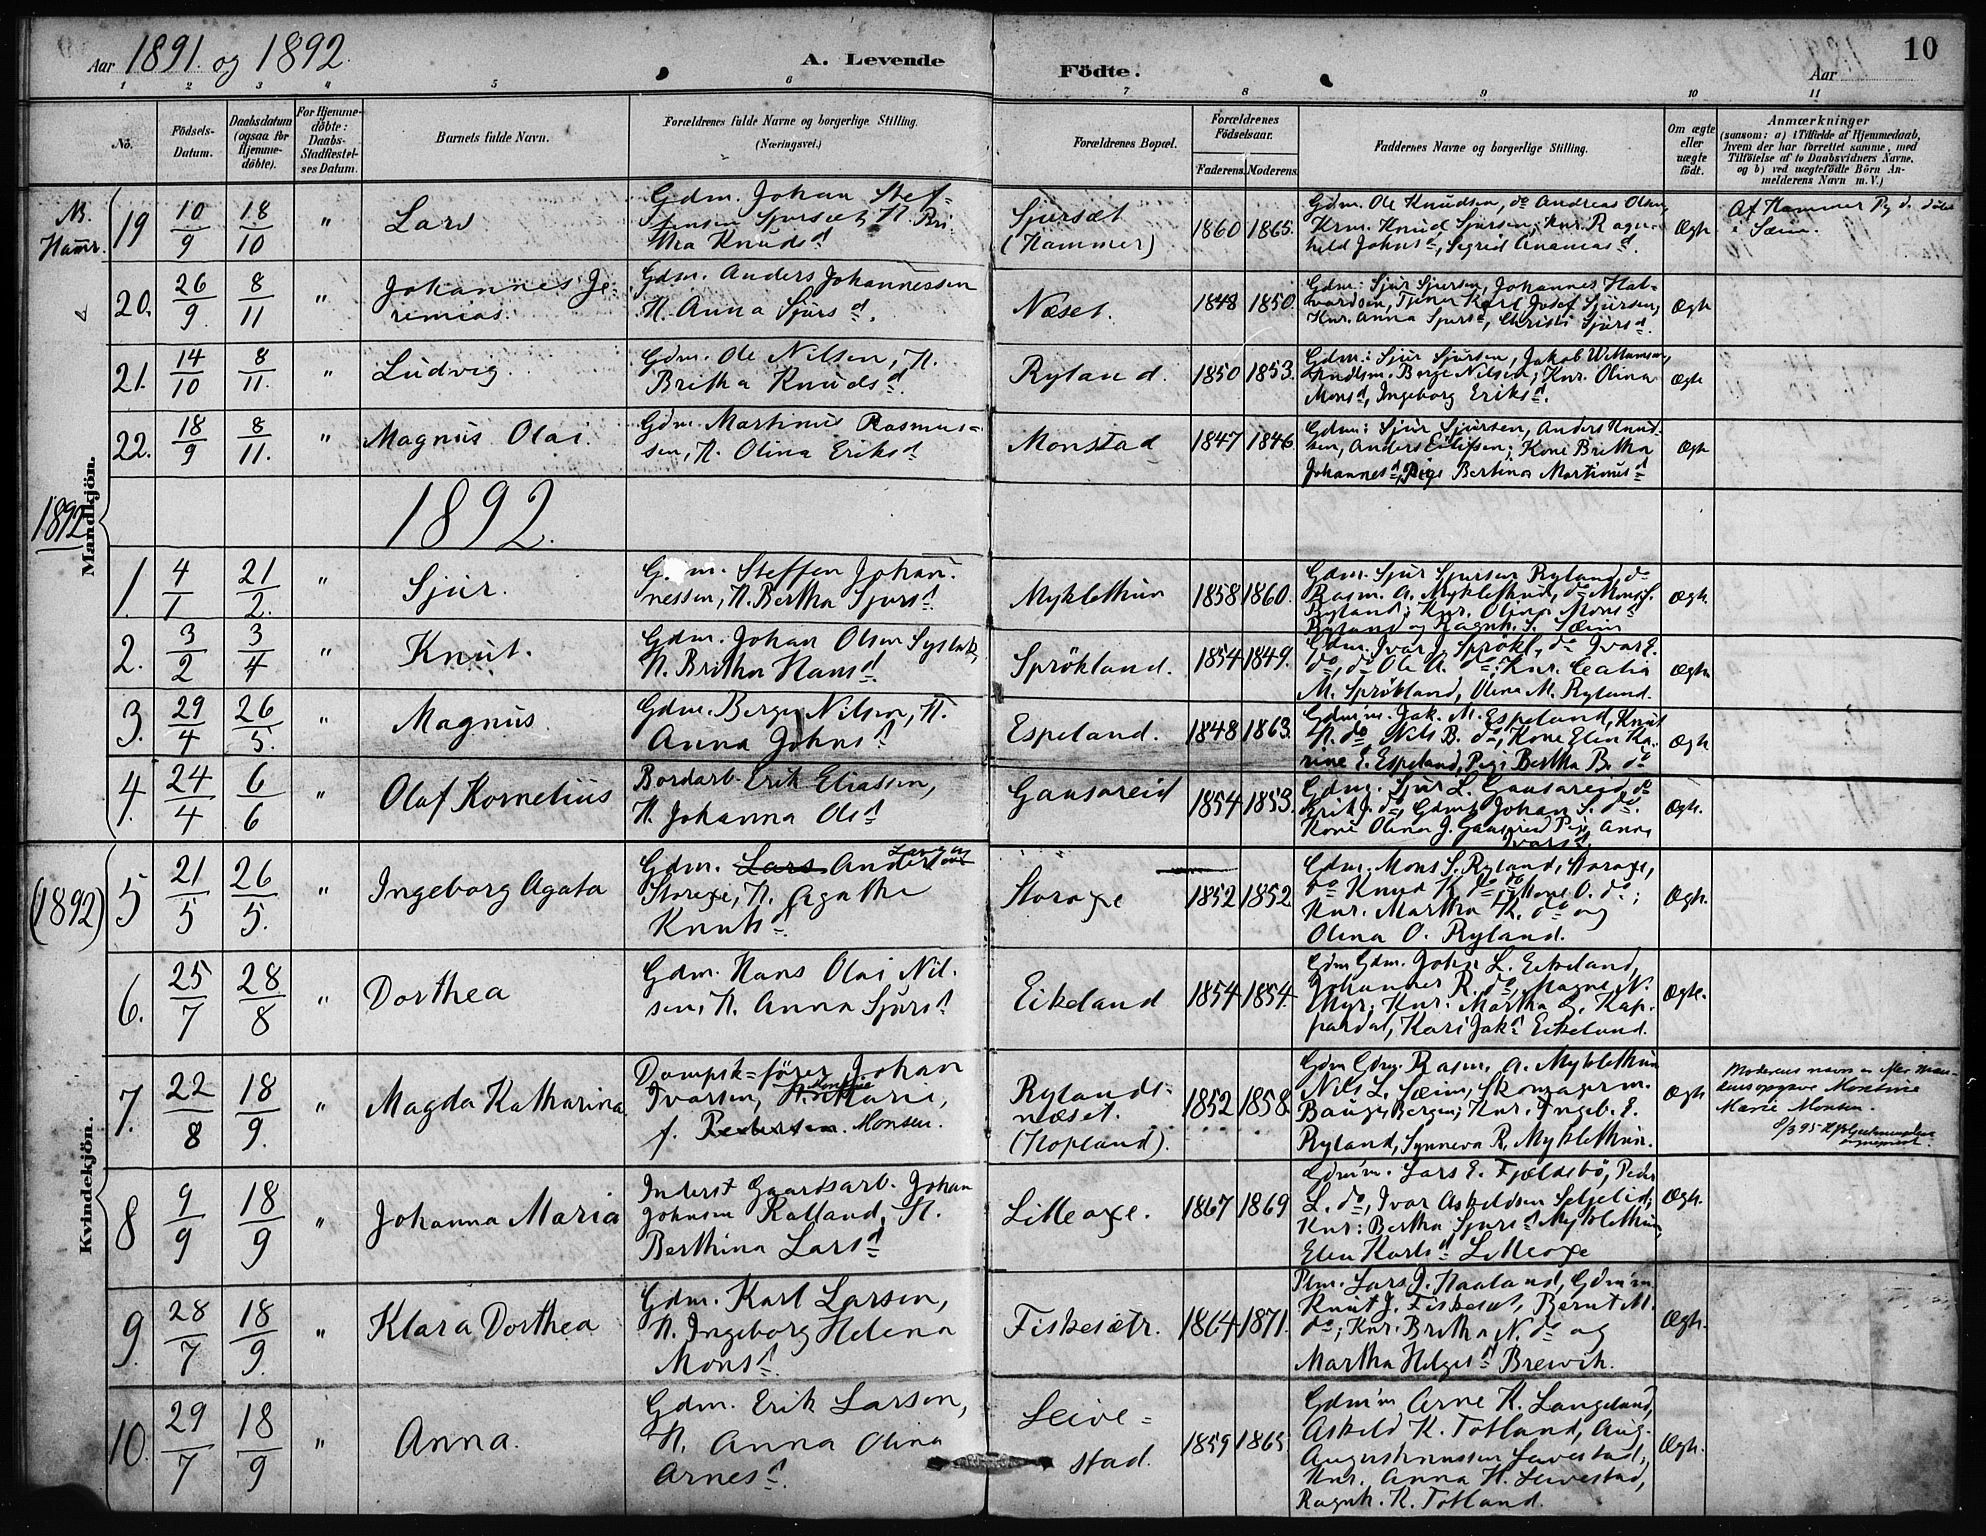 Aar 1891. og 1892. A. Levende Födte. Aar 10
1 2 3 4 5 6 7 8 9 10 11
No.
Födsels-
Datum.
Daabsdatum
(ogsaa for
Hjemme-
döbte).
For Hjemme-
döbte:
Daabs-
Stadfestel-
ses Datum.
Barnets fulde Navn.
Forældrenes fulde Navne og borgerlige Stilling.
(Næringsvei.)
Forældrenes Bopæl.
Forældrenes
Födselsaar.
Faderens. Moderens.
Faddernes Navne og borgerlige Stilling.
Om ægte
eller
uægte
födt.
Anmærkninger
(saasom: a) i Tilfælde af Hjemmedaab,
hvem der har forrettet samme, med
Tilföielse af to Daabsvidners Navne,
og b) ved uægtefödte Börn An-
melderens Navn m. V.)
Mandkjön.
Kvindekjön.
1892
(1892)
Hamr.
19 10/9 18/10 " Lars
Gdm. Johan Stef-
fensen Sjursæt, H. Bri-
tha Knudsd
Sjursæt
(Hammer)
1860 1865.
Gdm. Ole Knudsen, do Andreas Olsen,
Knud Sjursen, Knr. Ragn-
hild Johnsd, Sigrid Ananiasd.
Ægte
Af Hammer
i Sæim.
20. 26/9. 8/11 " Johannes Je-
remias.
Gdm. Anders Johannessen
H. Anna Sjursd.
Næset.
1848 1850.
Gdm: Sjur Sjursen, Johannes Hal-
vardsen, Tjener Karl Josef Sjursen,
Knr. Anna Sjursd, Christi Sjursd.
Ægte
21. 14/10 8/11. " Ludvig.
Gdm. Ole Nilsen, H.
Britha Knudsd.
Ryland.
1850 1853.
Gdm: Sjur Sjursen, Jakob Willumsen,
Berge Nilsen; Knr. Olina
Monsd, Ingeborg Eriksd.
Ægte
22. 18/9 8/11. " Magnus Olai.
Gdm. Martinus Rasmus-
sen, H. Olina Eriksd
Monstad
1847 1846
Gdm: Sjur Sjursen, Anders Knud-
sen, Anders Eilifsen; Kone Britha
Johannesd, Pige Bertina Martinusd
Ægte
1892.
1. 4/1 21/2. " Sjur.
Gdm. Steffen Johan-
nessen, H. Bertha Sjursd.
Myklethun
1858 1860.
Gdm. Sjur Sjursen Ryland, do
Rasm. A. Myklethun, do Mons S.
Ryland; Knr. Olina Monsd
Ryland og Ragnh. S. Sæim
Ægte.
2. 3/2 3/4 " Knut.
Gdm. Johan Olsen
H. Britha Hansd
Sprökland.
1854 1849.
Gdm. Ivar J. Sprökl, do Ivar E.
do, do Ole A. do; Knr.
M. Sprökland, Olina M. Ryland.
Ægte
3. 29/4 26/5. " Magnus.
Gdm. Berge Nilsen, H.
Anna Johnsd
Espeland.
1848 1863.
Gdm'm. Jak. M. Espeland, Knut
H. do Nils B. do, Kone Elen Ka-
rine E. Espeland, Pige Bertha B. do
Ægte
4. 24/4 6/6 " Olaf Kornelius
Bordarb. Erik Eliassen,
H. Johanna Olsd
Gausereid
1854 1853.
Gdm. Sjur L. Gausereid, do
Erik J. do, Gdms. Johan S. do.
Kone Olina J. Gausereid Pige Anna
Ivarsd
Ægte.
5 21/5 26/5. " Ingeborg Agata
Gdm. Lars Anders
Storoxe, H. Agathe
Knutsd
Storoxe
1852 1852
Gdm. Mons S. Ryland, Storoxe,
do Knud K. do, do Mons O. do;
Knr. Martha K. do og
Olina O. Ryland.
Ægte.
6. 25/7 28/8 " Dorthea
Gdm. Hans Olai Nil-
sen, H. Anna Sjursd.
Eikeland
1854 1854.
Gdm Gdm. John L. Eikeland,
Johannes R. do, Magne N.
Myr; Knr. Martha G. Kap-
pardal, Kari Jakd Eikeland.
Ægte.
7. 22/8 18/9. " Magda Katharina
Dampsk=förer Johan
Ivarsen, H. Marie,
f. Pedersen. Monsen.
Rylands-
næset.
(Hopland).
1852 1858.
Gdm Gdm. Rasm. A. Myklethun
Nils L. Sæim, Skomagerm.
Bauge, Bergen; Knr. Ingeb. E.
Ryland, Synneva R. Myklethun.
Ægte
Moderens navn er efter
opgave Montine
Marie Monsen.
8/3 95
8 9/9 18/9 " Johanna Maria
Inderst Gaardsarb. Johan
Johnsen Ralland, H.
Berthina Larsd
Lilleoxe.
1867 1869
Gdm'm. Lars E. Fjeldsbö, Peder
L. do, Ivar Askeldsen Seljelid,
Knr: Bertha Sjursd Myklethun,
Elen Karlsd Lilleoxe
Ægte.
9. 28/7 18/9. " Klara Dorthea
Gdm. Karl Larsen,
H. Ingeborg Helena
Monsd.
Fiskesætr.
1864 1871.
Plm. Lars J. Haaland, Gdm'm.
Knut J. Fiskesæt, Bernt M.
do; Knr. Britha N. do og
Martha Helgesd Breivik.
Ægte.
10. 29/7 18/9 " Anna.
Gdm. Erik Larsen,
H. Anna Olina
Arnesd.
Leive=
stad.
1859 1865.
Gdm'm Arne K. Langeland,
Askeld K. Totland, Aug.
Augustinussen Leivestad,
Knr. Anna H. Leivestad,
Ragnh. K. Totland.
Ægte.